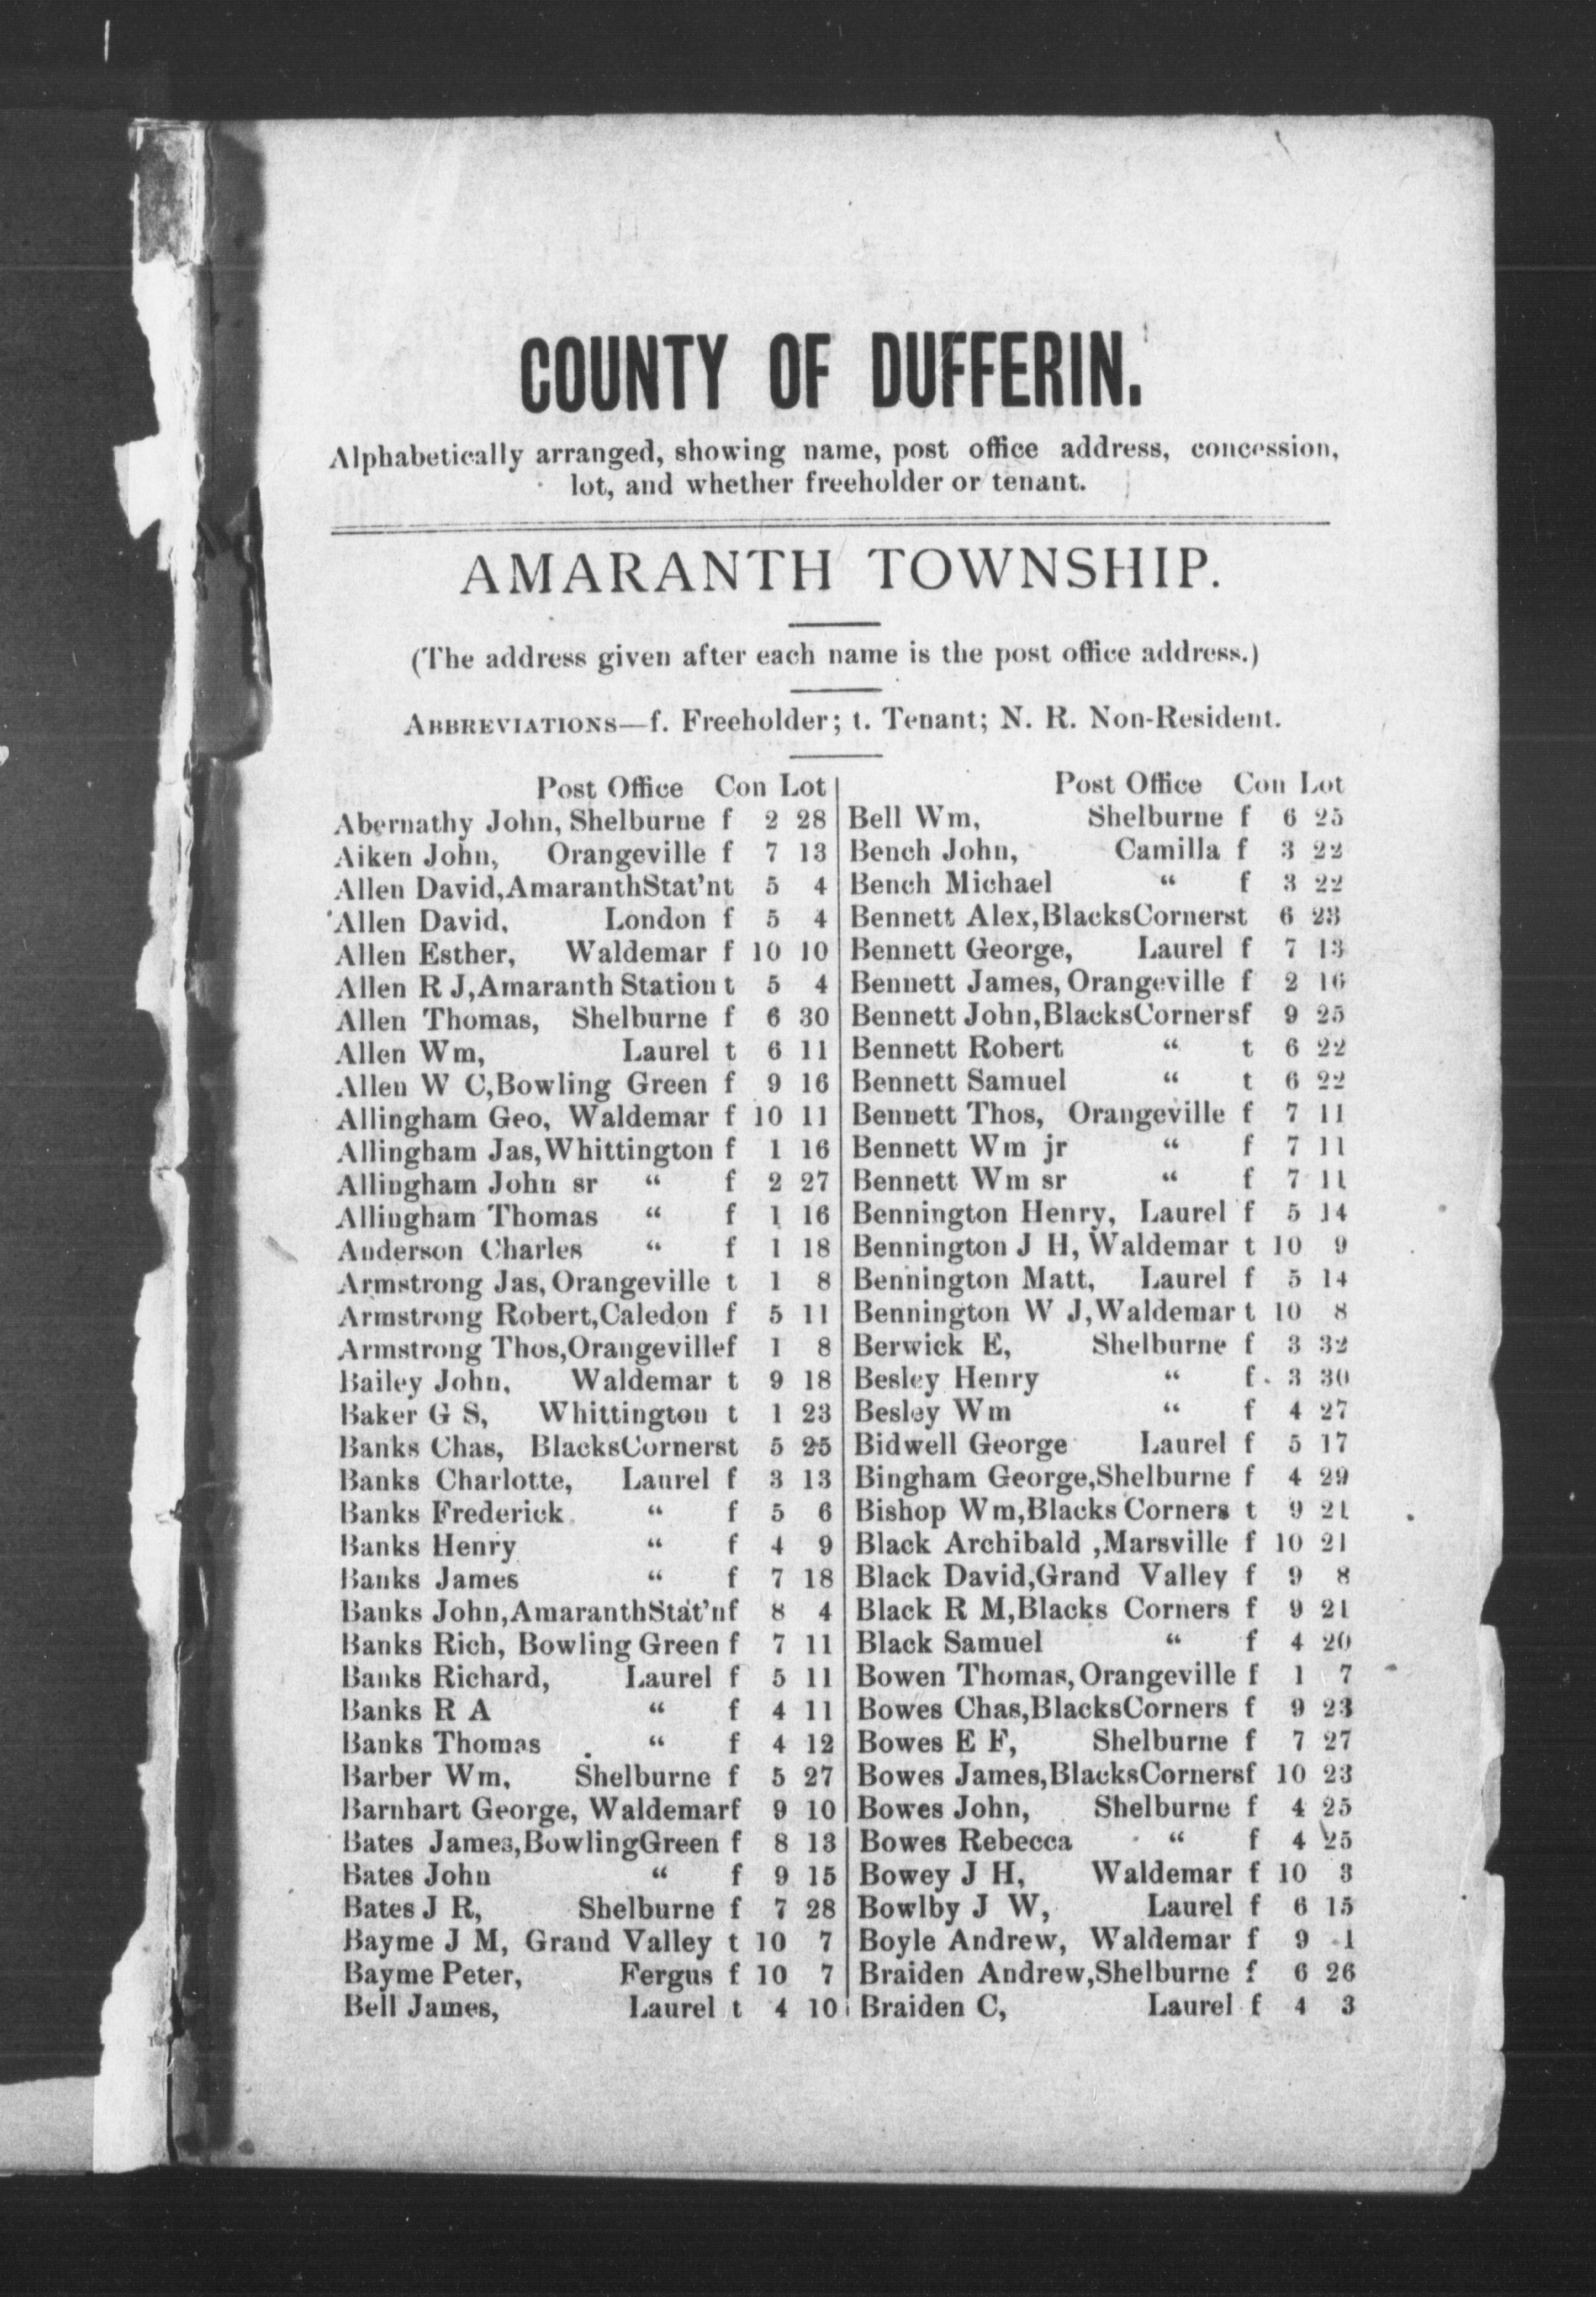 COUNTY OF DUFFERIN.
Alphabetically arranged, showing name, post office address, concession,
lot, and whether freeholder or tenant.
AMARANTH TOWNSHIP.
(The address given after each name is the post office address.)
ABBREVIATIONS—f. Freeholder; t. Tenant; N. R. Non-Resident.
Post Office Con Lot
Abernathy John, Shelburne f 2 28
Aiken John, Orangeville f 7 13
Allen David,AmaranthStat'nt 5 4
Allen David, London f 5 4
Allen Esther, Waldemar f 10 10
Allen R J,Amaranth Station t 5 4
Allen Thomas, Shelburne f 6 30
Allen Wm, Laurel t 6 11
Allen W C,Bowling Green f 9 16
Allingham Geo, Waldemar f 10 11
Allingham Jas,Whittington f 1 16
Allingham John sr “ f 2 27
Allingham Thomas “ f 1 16
Anderson Charles “ f 1 18
Armstrong Jas,Orangeville t 1 8
Armstrong Robert,Caledon f 5 11
Armstrong Thos,Orangevillef 1 8
Bailey John, Waldemar t 9 18
Baker G S, Whittington t 1 23
Banks Chas, BlacksCornerst 5 25
Banks Charlotte, Laurel f 3 13
Banks Frederick “ f 5 6
Banks Henry “ f 4 9
Banks James “ f 7 18
Banks John,AmaranthStat'nf 8 4
Banks Rich, Bowling Green f 7 11
Banks Richard, Laurel f 5 11
Banks R A “ f 4 11
Banks Thomas “ f 4 12
Barber Wm, Shelburne f 5 27
Barnhart George, Waldemarf 9 10
Bates James,BowlingGreen f 8 13
Bates John “ f 9 15
Bates J R, Shelburne f 7 28
Bayme J M, Grand Valley t 10 7
Bayme Peter, Fergus f 10 7
Bell James, Laurel t 4 10
Post Office Con Lot
Bell Wm, Shelburne f 6 25
Bench John, Camilla f 3 22
Bench Michael “ f 3 22
Bennett Alex,BlacksCornerst 6 23
Bennett George, Laurel f 7 13
Bennett James, Orangeville f 2 16
Bennett John,BlacksCornersf 9 25
Bennett Robert “ t 6 22
Bennett Samuel “ t 6 22
Bennett Thos, Orangeville f 7 11
Bennett Wm jr “ f 7 11
Bennett Wm sr “ f 7 11
Bennington Henry, Laurel f 5 14
Bennington J H, Waldemar t 10 9
Bennington Matt, Laurel f 5 14
Bennington W J,Waldemar t 10 8
Berwick E, Shelburne f 3 32
Besley Henry “ f 3 30
Besley Wm “ f 4 27
Bidwell George Laurel f 5 17
Bingham George,Shelburne f 4 29
Bishop Wm,Blacks Corners t 9 21
Black Archibald ,Marsville f 10 21
Black David,Grand Valley f 9 8
Black R M,Blacks Corners f 9 21
Black Samuel “ f 4 20
Bowen Thomas, Orangeville f 1 7
Bowes Chas,BlacksCorners f 9 23
Bowes E F, Shelburne f 7 27
Bowes James,BlacksCornersf 10 23
Bowes John, Shelburne f 4 25
Bowes Rebecca “ f 4 25
Bowey J H, Waldemar f 10 3
Bowlby J W, Laurel f 6 15
Boyle Andrew, Waldemar f 9 1
Braiden Andrew,Shelburne f 6 26
Braiden C, Laurel f 4 3